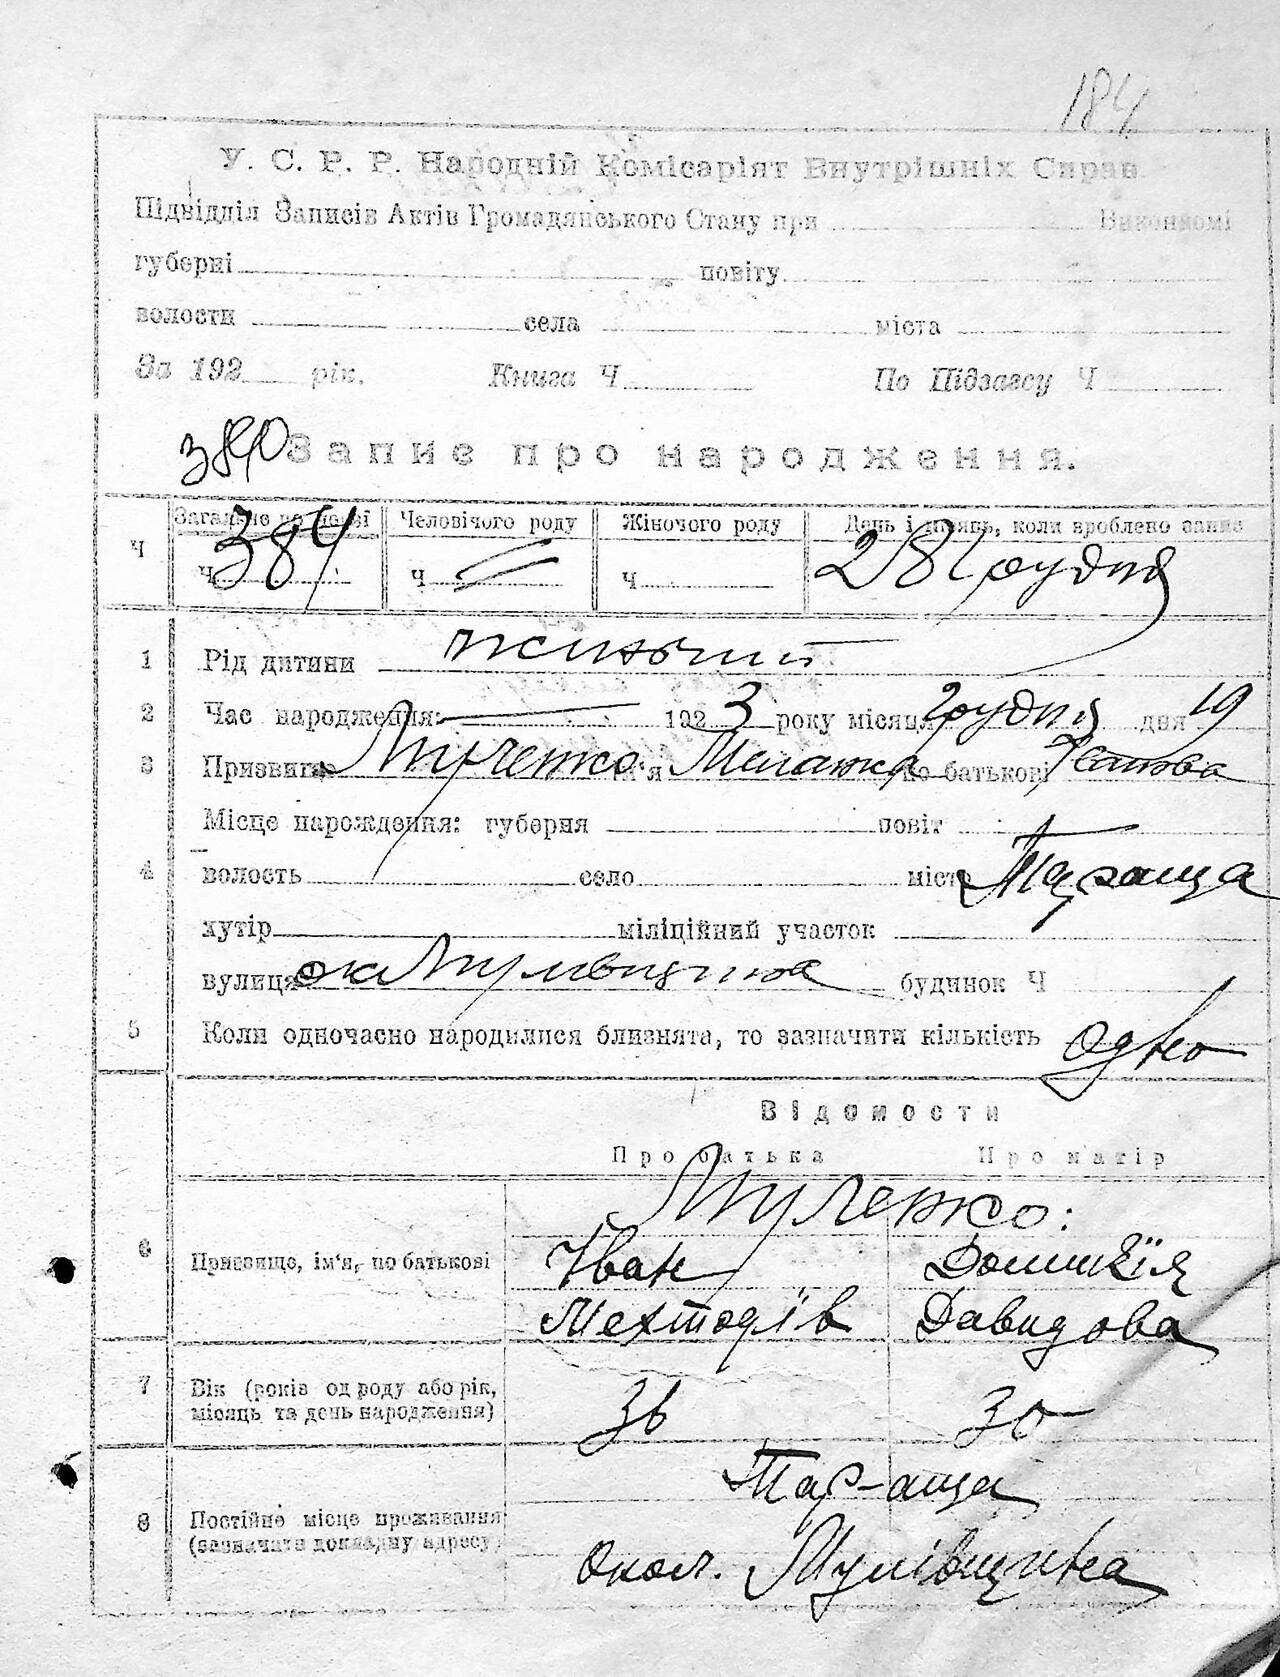 184
У. С. Р. Р. Народній Комісаріят Внутрішніх Справ
Підвідділ Записів Актів Громадянського Стану при Виконкомі
губерні повіту
волости села міста
За 192 рік. Книга Ч По Підзагсу Ч
380 Запис про народження.
Загальне по книзі Человічого роду Жіночого роду День і місяць, коли вроблено запис
Ч Ч 384 Ч Ч 28 Грудня
1 Рід дитини жіночий
2 Час народження: 1923 року місяця Грудня дня 19
3 Призвище ім'я Меланка по батькові Іванова
Місце народження: губерня повіт
4 волость село місто Тараща
хутір міліційний участок
вулиця ок будинок Ч
5 Коли одночасно народилися близнята, то зазначити кількість одно
Відомости
Про батька Про матір
6 Призвище, ім'я, по батькові
Іван Домникія
Мехтодів Давидова
7 Вік (років од роду або рік, місяць та день народження) 36 30
Тараща
8 Постійне місце проживання (зазначити докладну адресу)
окол. Мулівщина